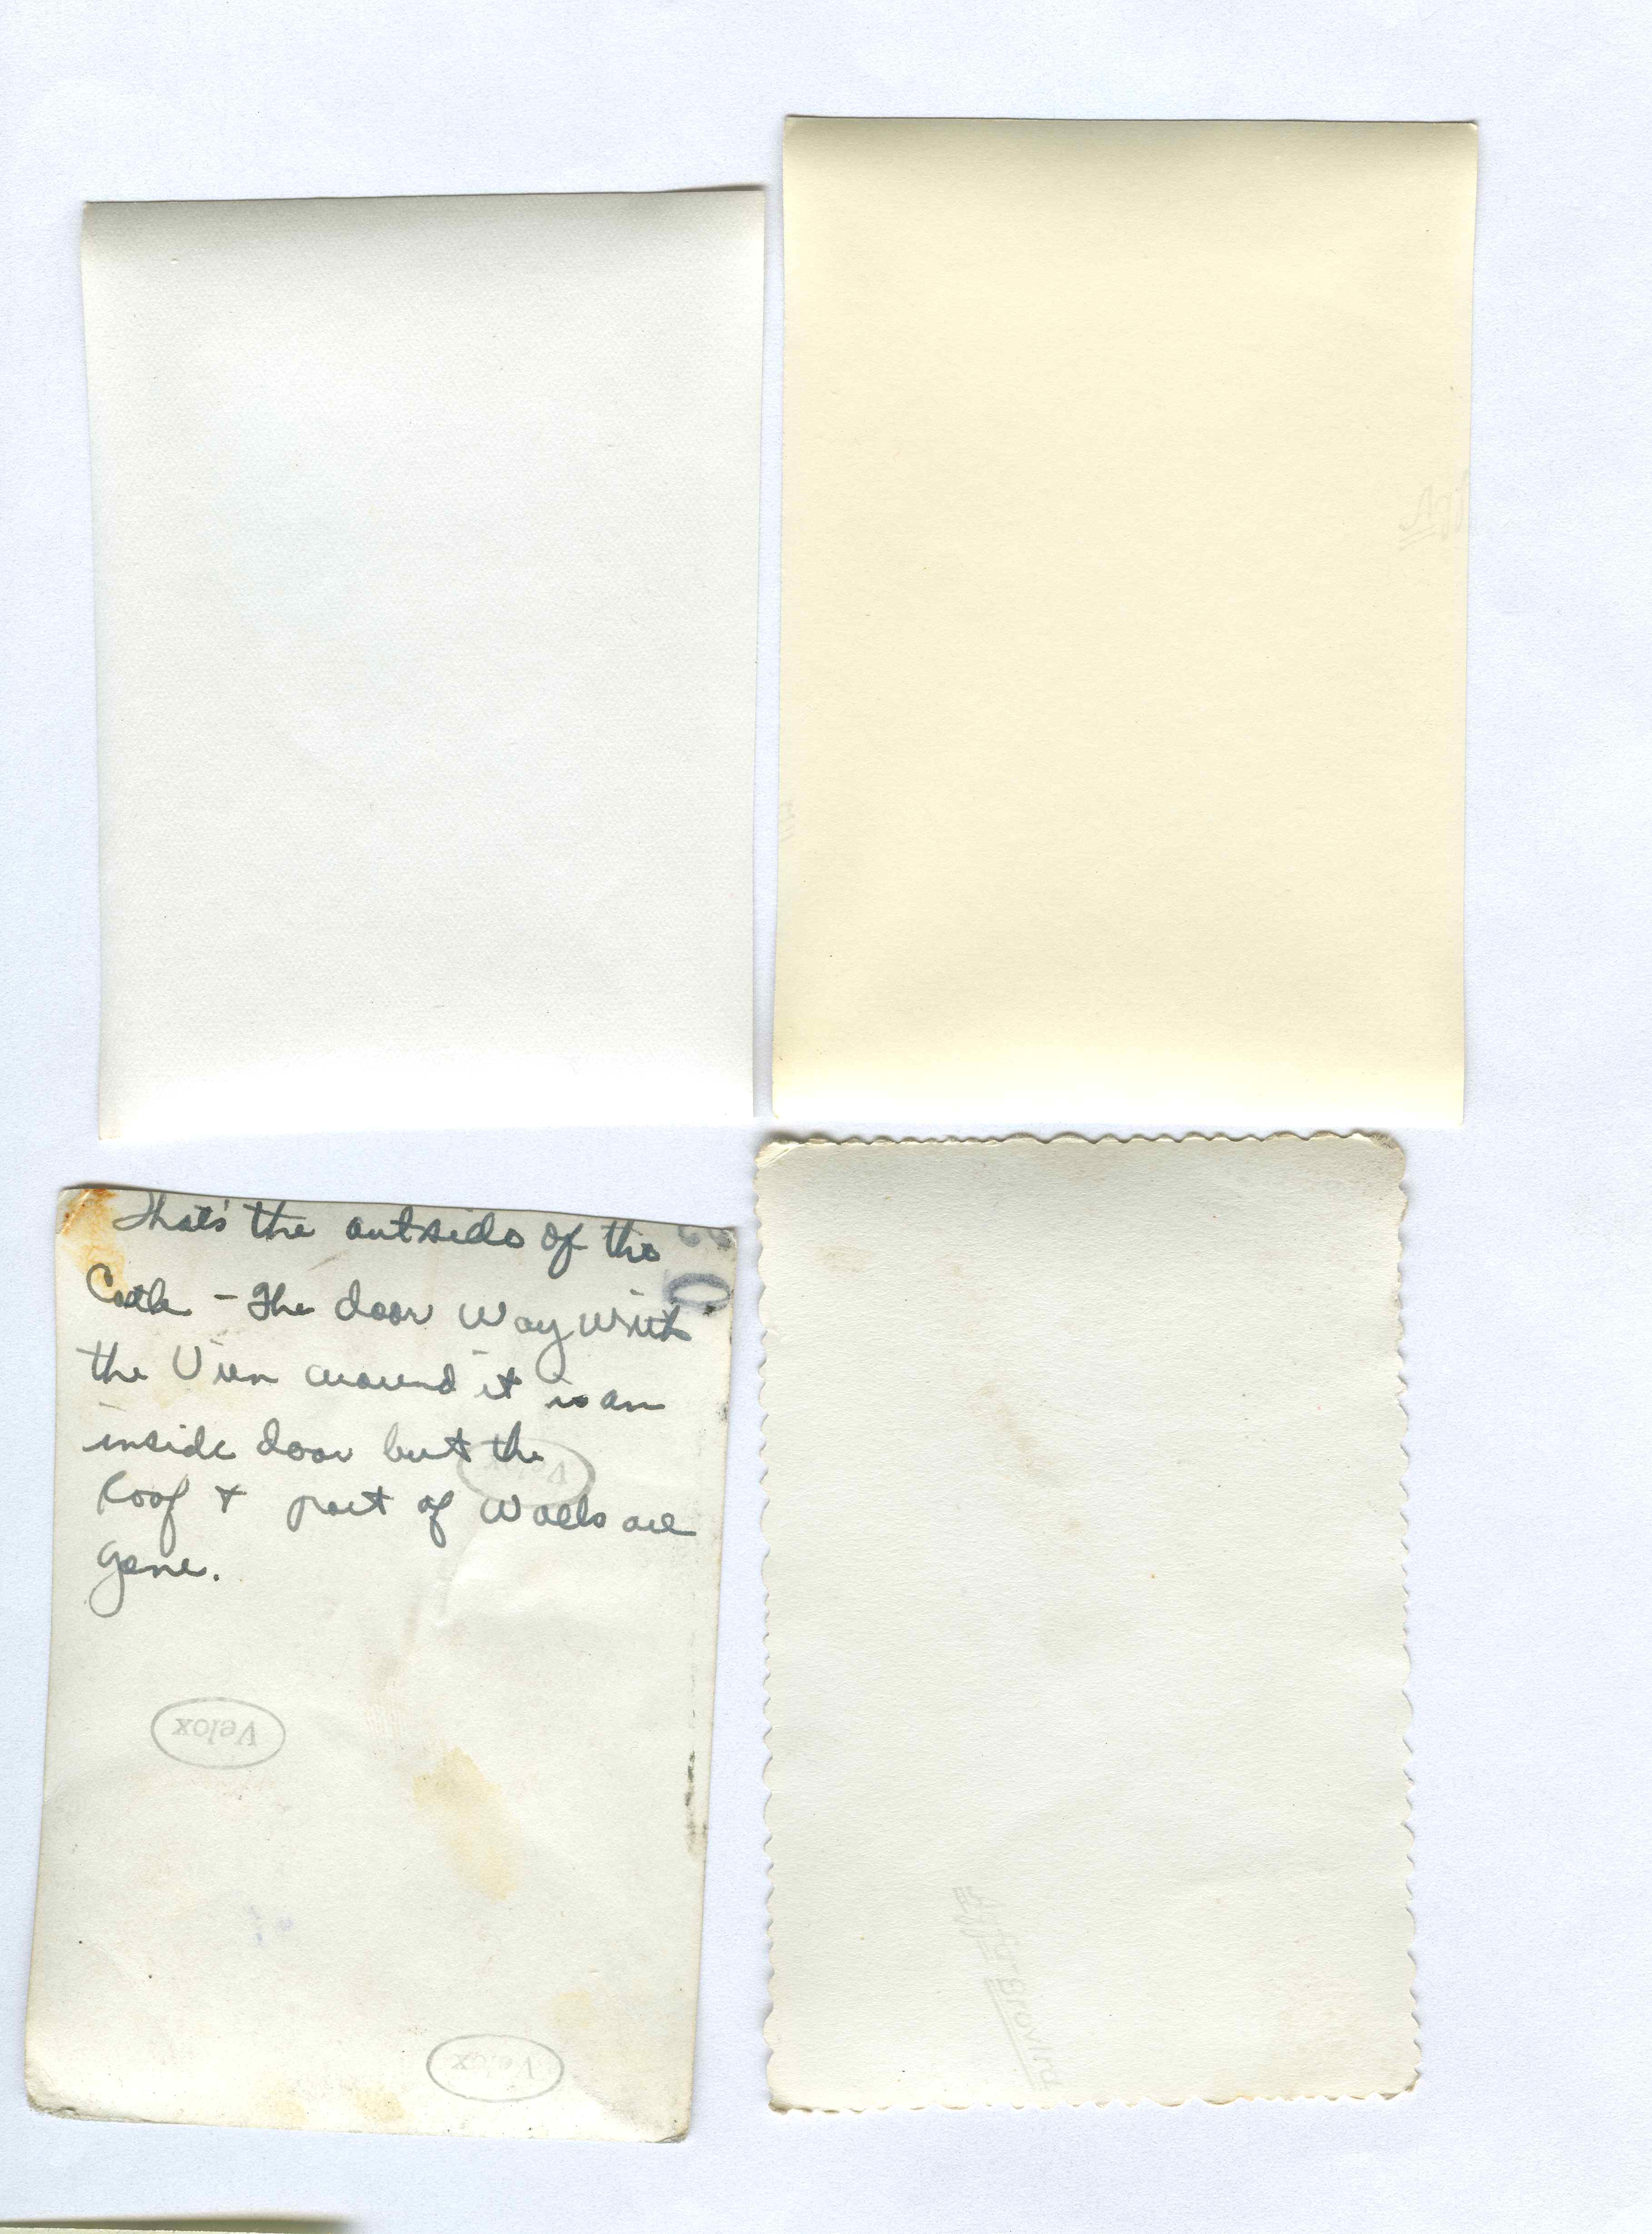 That's the outside of the
Castle - The door way with
the Vien around it is an
inside door but the
Roof & part of walls are
gone.
Velox
Velox
Velox